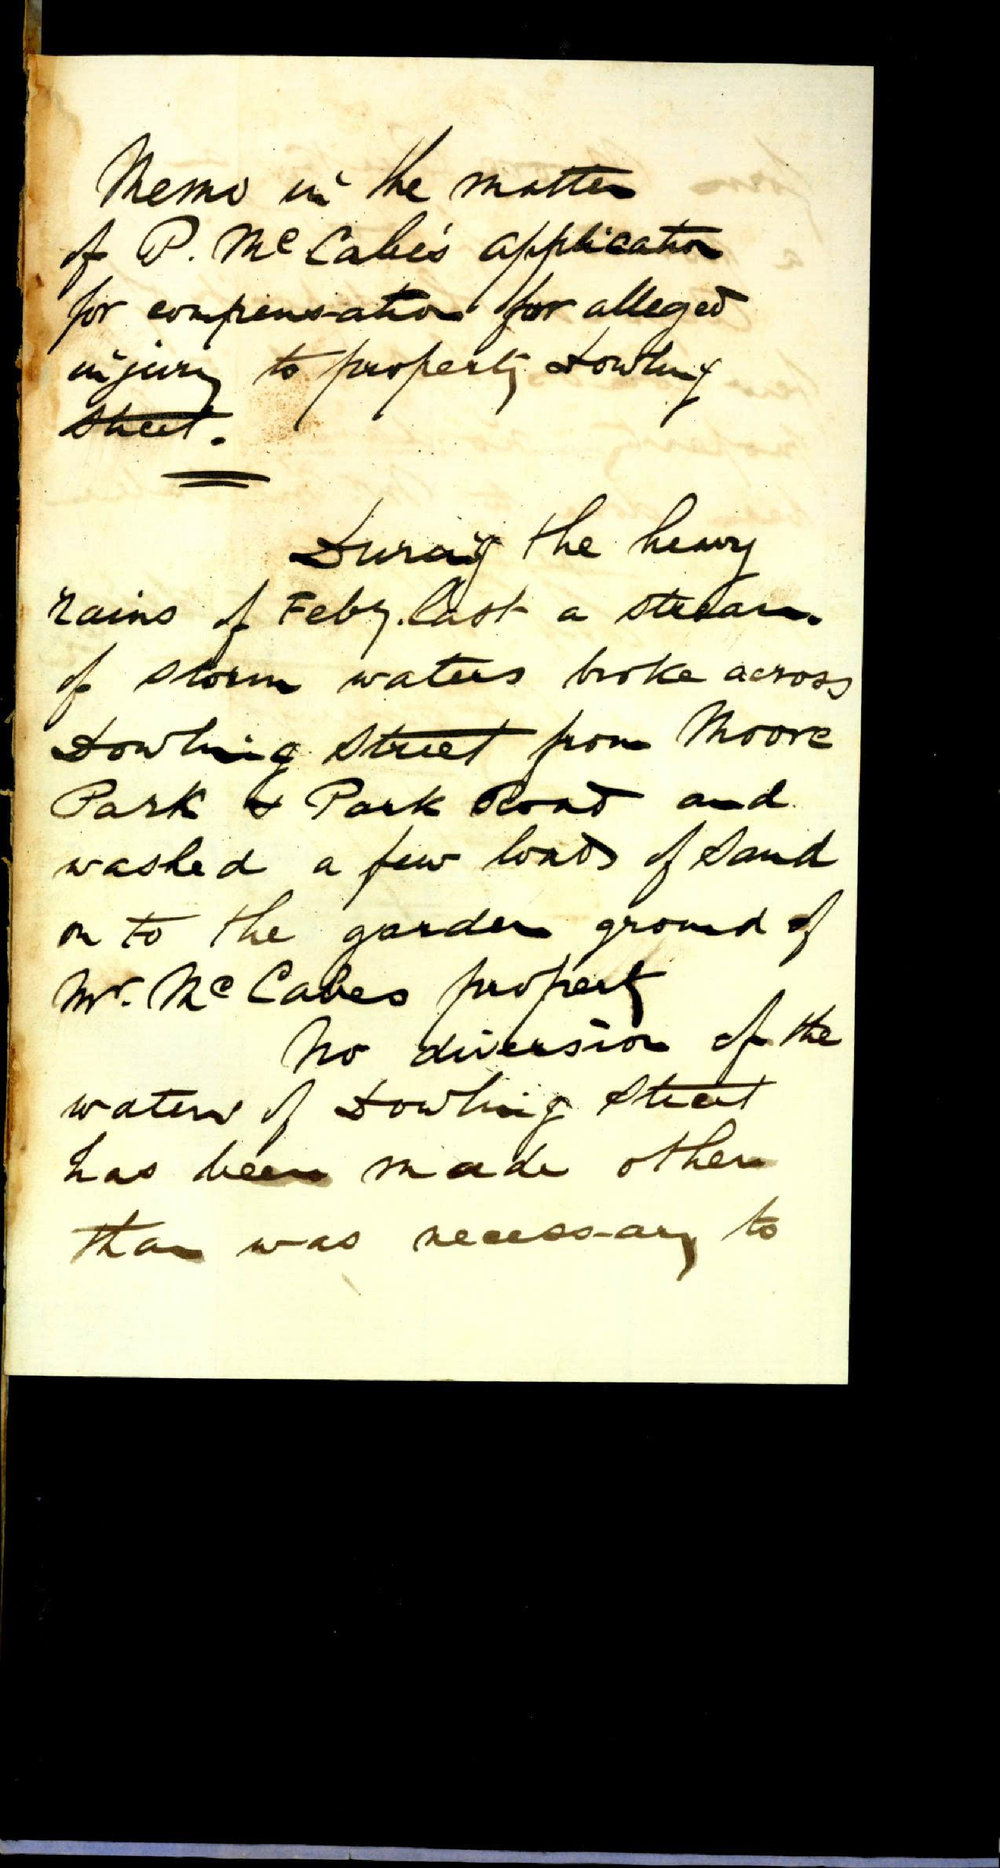 Memo in the matter
of P. McCabe's application
for compensation for alleged
injury to property Dowling
Street.
During the heavy
rains of Feby. last a stream
of storm waters broke across
Dowling Street from Moore
Park & Park Road and
washed a few loads of sand
on to the garden ground of
Mr. McCabes property
No diversion of the
waters of Dowling Street
has been made other
than was necessary to